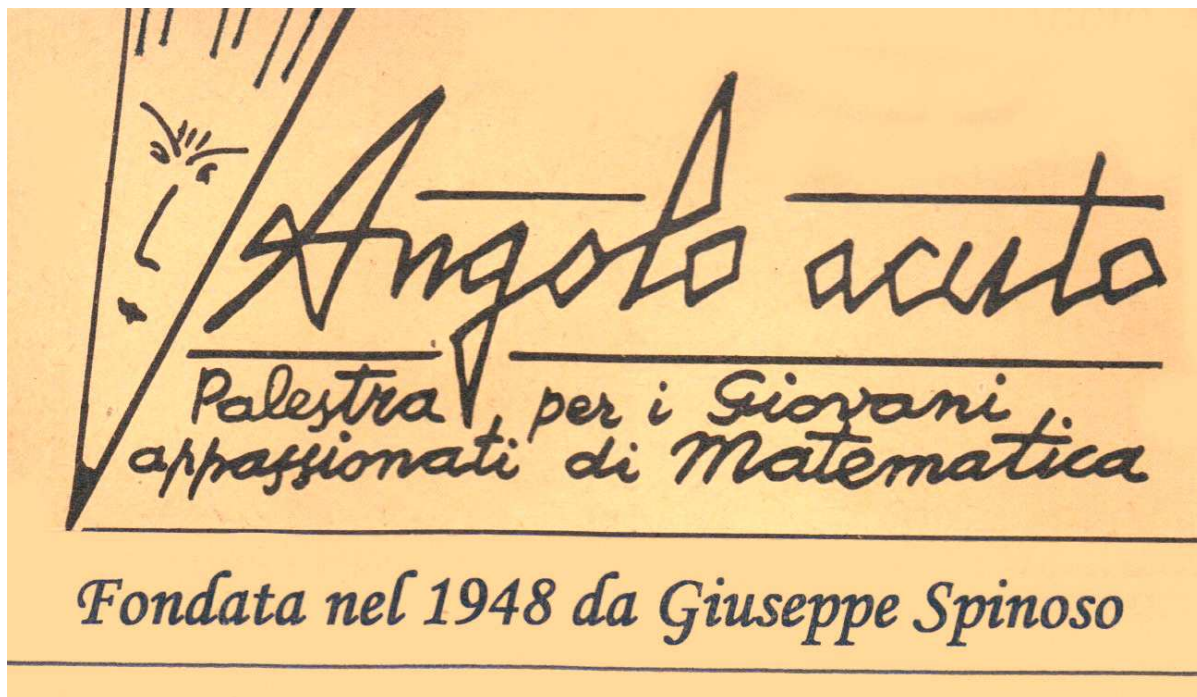 Angolo acuto
Palestra per i Giovani
appassionati di Matematica
Fondata nel 1948 da Giuseppe Spinoso